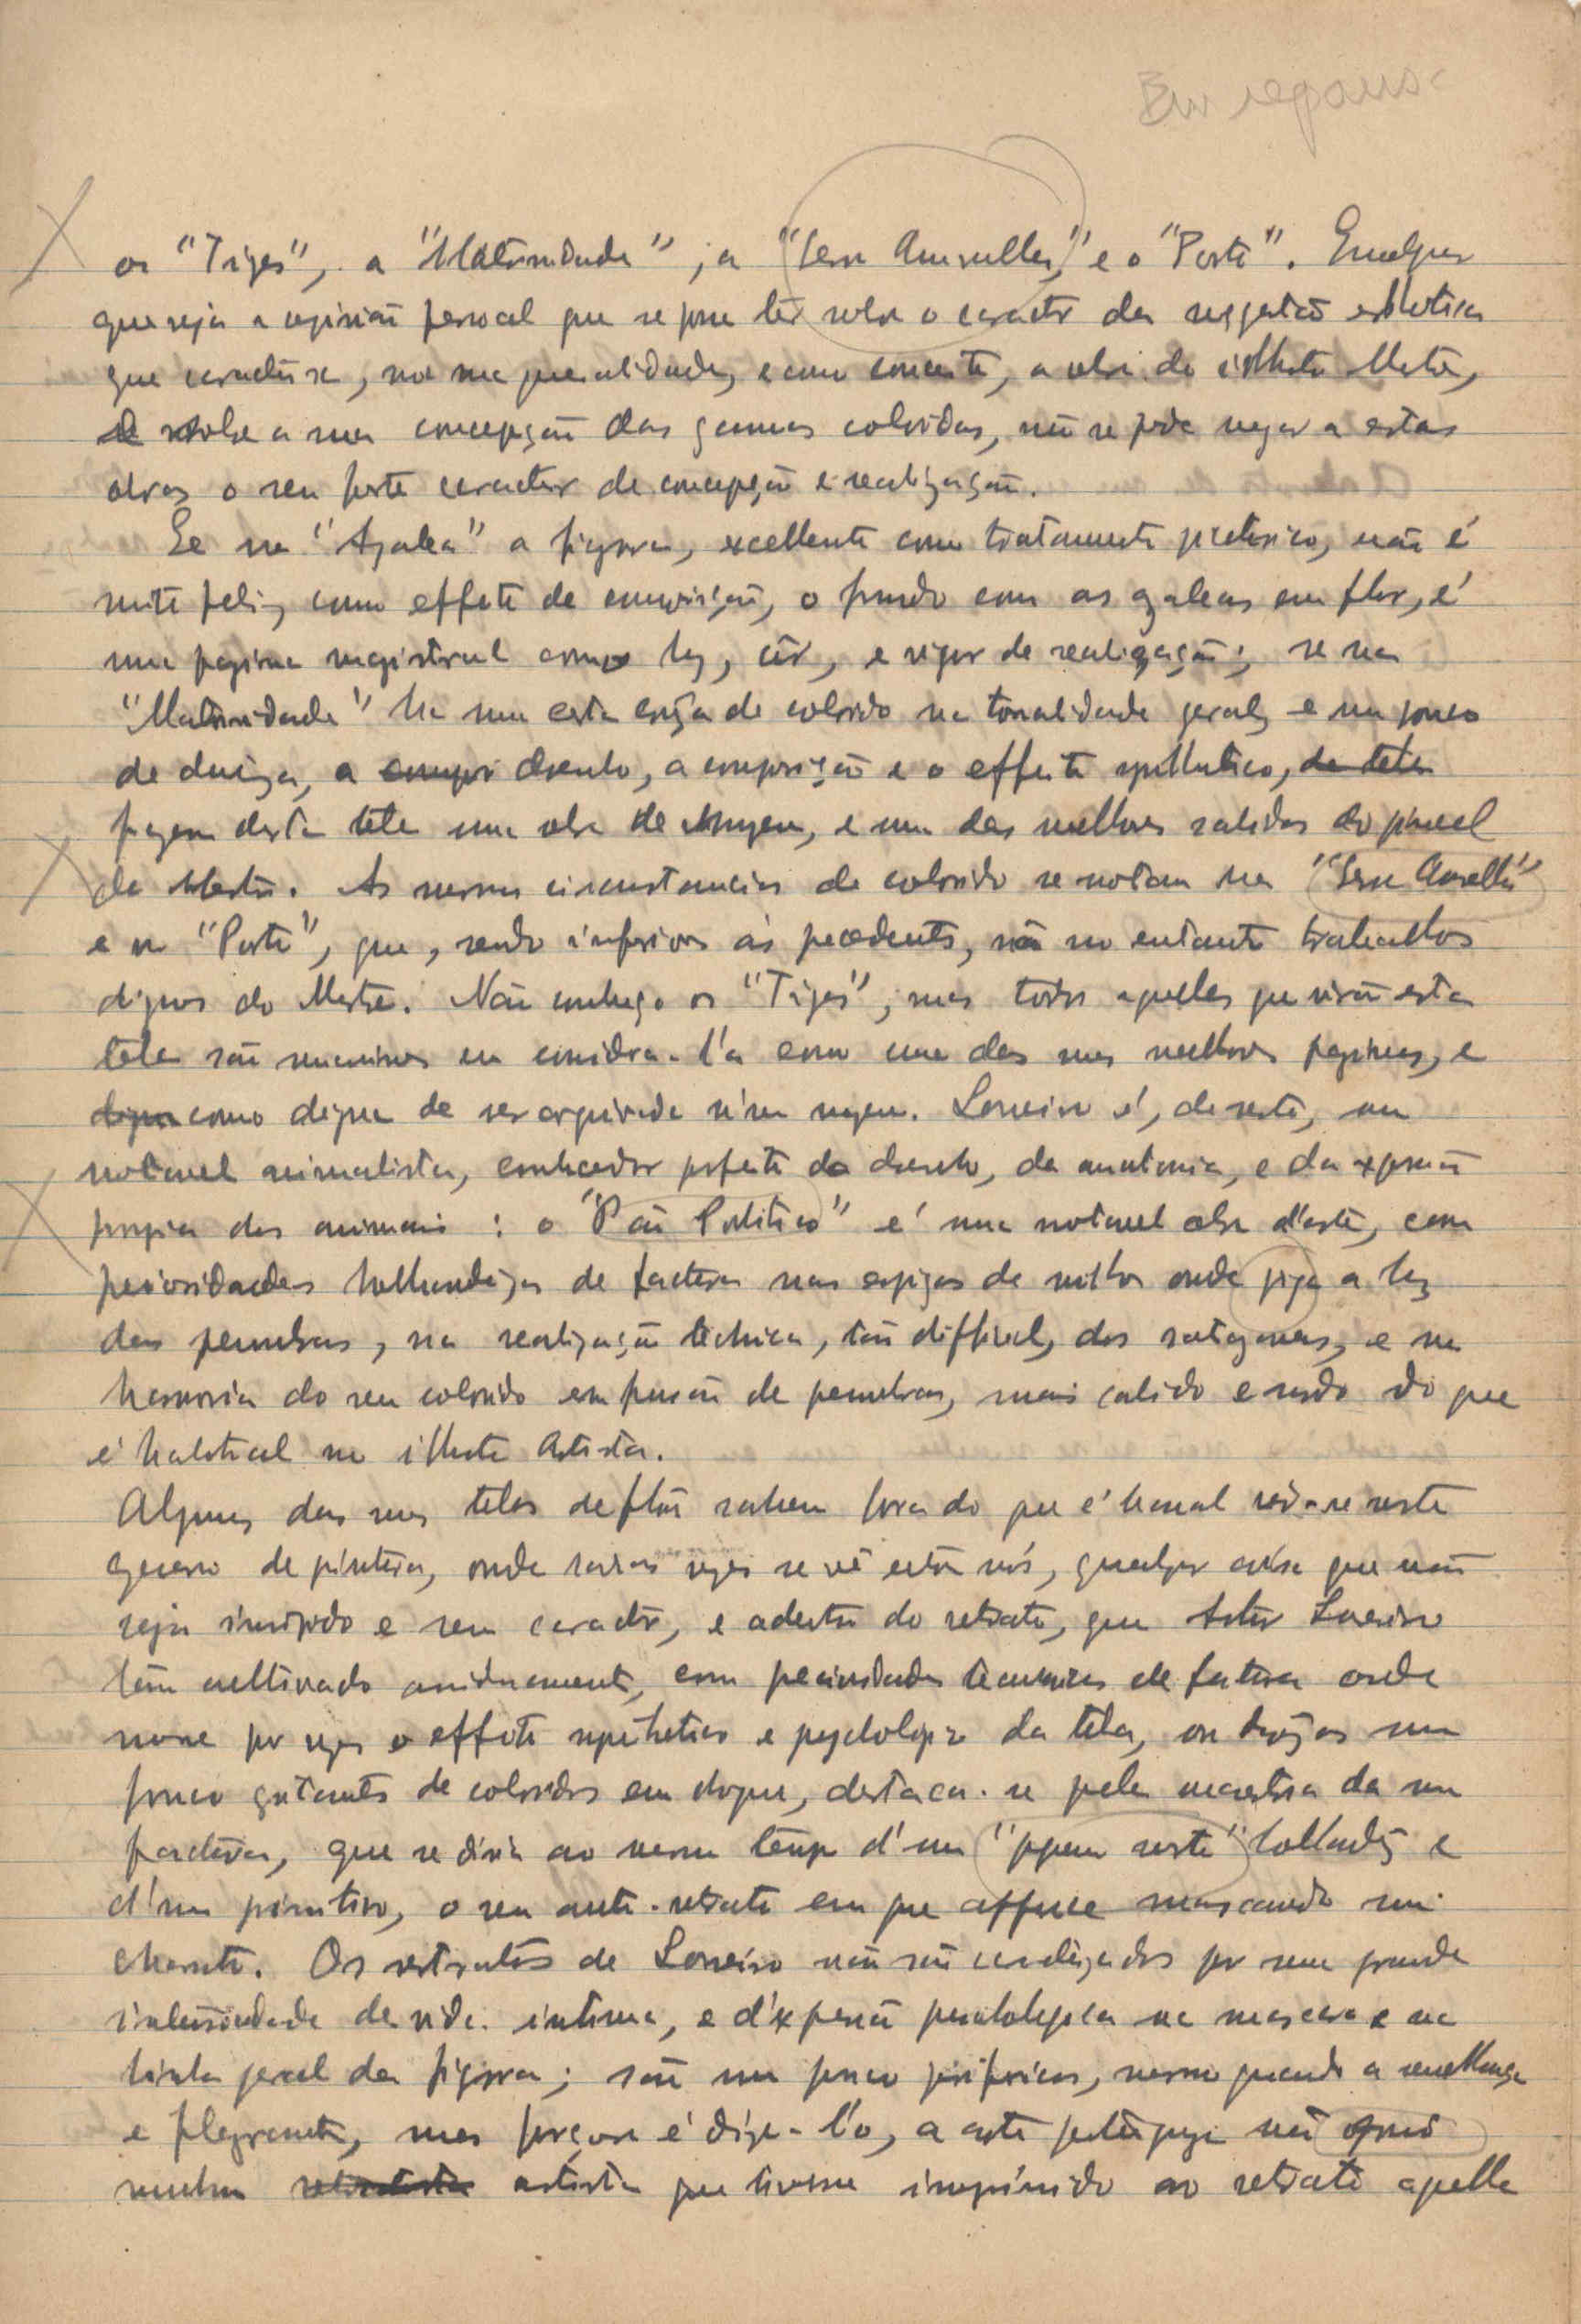 Em repouso
os "Tigres", a "Maternidade", a "Serra Amarella", e o "Porto". Qualquer
que seja a opinião pessoal que se possa têr sobre o caracter da sugestão esthetica
que caracterisa, na sua generalidade, e como conceito, a obra do illustre Mestre,
e sobre a sua concepção das gamas coloridas, não se pode negar a estas
obras o seu forte caracter de concepção e realização.
Se na "Azalea" a figura, excellente como tratamento pictorico, não é
muito feliz como effeito de composição, o fundo com as azaleas em flor, é
uma pagina magistral como luz, côr, e vigor de realização; se na
"Maternidade" ha uma certa de colorido na tonalidade geral, e um pouco
de dureza, a compos desenho, a composição e o effeito synthetico, da tela
fazem desta tela uma obra de Museu, e uma das melhores sahidas do pincel
do Mestre. As mesmas circunstancias de colorido se notam na "Serra Amarella"
e no "Porto", que, sendo inferiores ás precedentes, são no entanto trabalhos
dignos do Mestre. Não conheço os "Tigres", mas todos aquelles que viram esta
tela são unanimes em considera-l'a como uma das suas melhores paginas, e
digna como digna de ser arquivada n'um museu. Loureiro é, de resto, um
notavel animalista, conhecedor perfeito do desenho, da anatomia, e da expressão
propria dos animais: o "Pão Politico" é uma notavel obra d'arte, com
preciosidades hollandezas de factura nas espigas de milho onde a luz
das penumbras, na realização technica, tão difficil, das ratazanas, e na
harmonia do seu colorido em fusão de penumbras, mais calido e surdo do que
é habitual no illustre Artista.
Algumas das suas telas de flôres sahem fora do que é banal vêr-se neste
genero de pintura, onde raras vezes se vê entre nós, qualquer coisa que não
seja insipido e sem caracter, e adentro do retrato, que Artur Loureiro
tem cultivado assiduamente, com preciosidades technicas de factura onde
morre por vezes o effeito synthetico e psychologico da tela, ou durezas um
pouco gritantes de coloridos em choque, destaca-se pela mestria da sua
factura, que se diria ao mesmo tempo d'um hollandez e
d'um primitivo, o seu auto-retrato em que apparece mascando um
charuto. Os retratos de Loureiro não são realizados por uma grande
intensidade de vida intima, e d'expressão psychologica na mascara e na
linha geral da figura; são um pouco perifericos, mesmo quando a semelhança
é flagrante, mas forçoso é dize-l'o, a arte portugueza não
nenhum retratista artista que tivesse imprimido ao retrato aquella